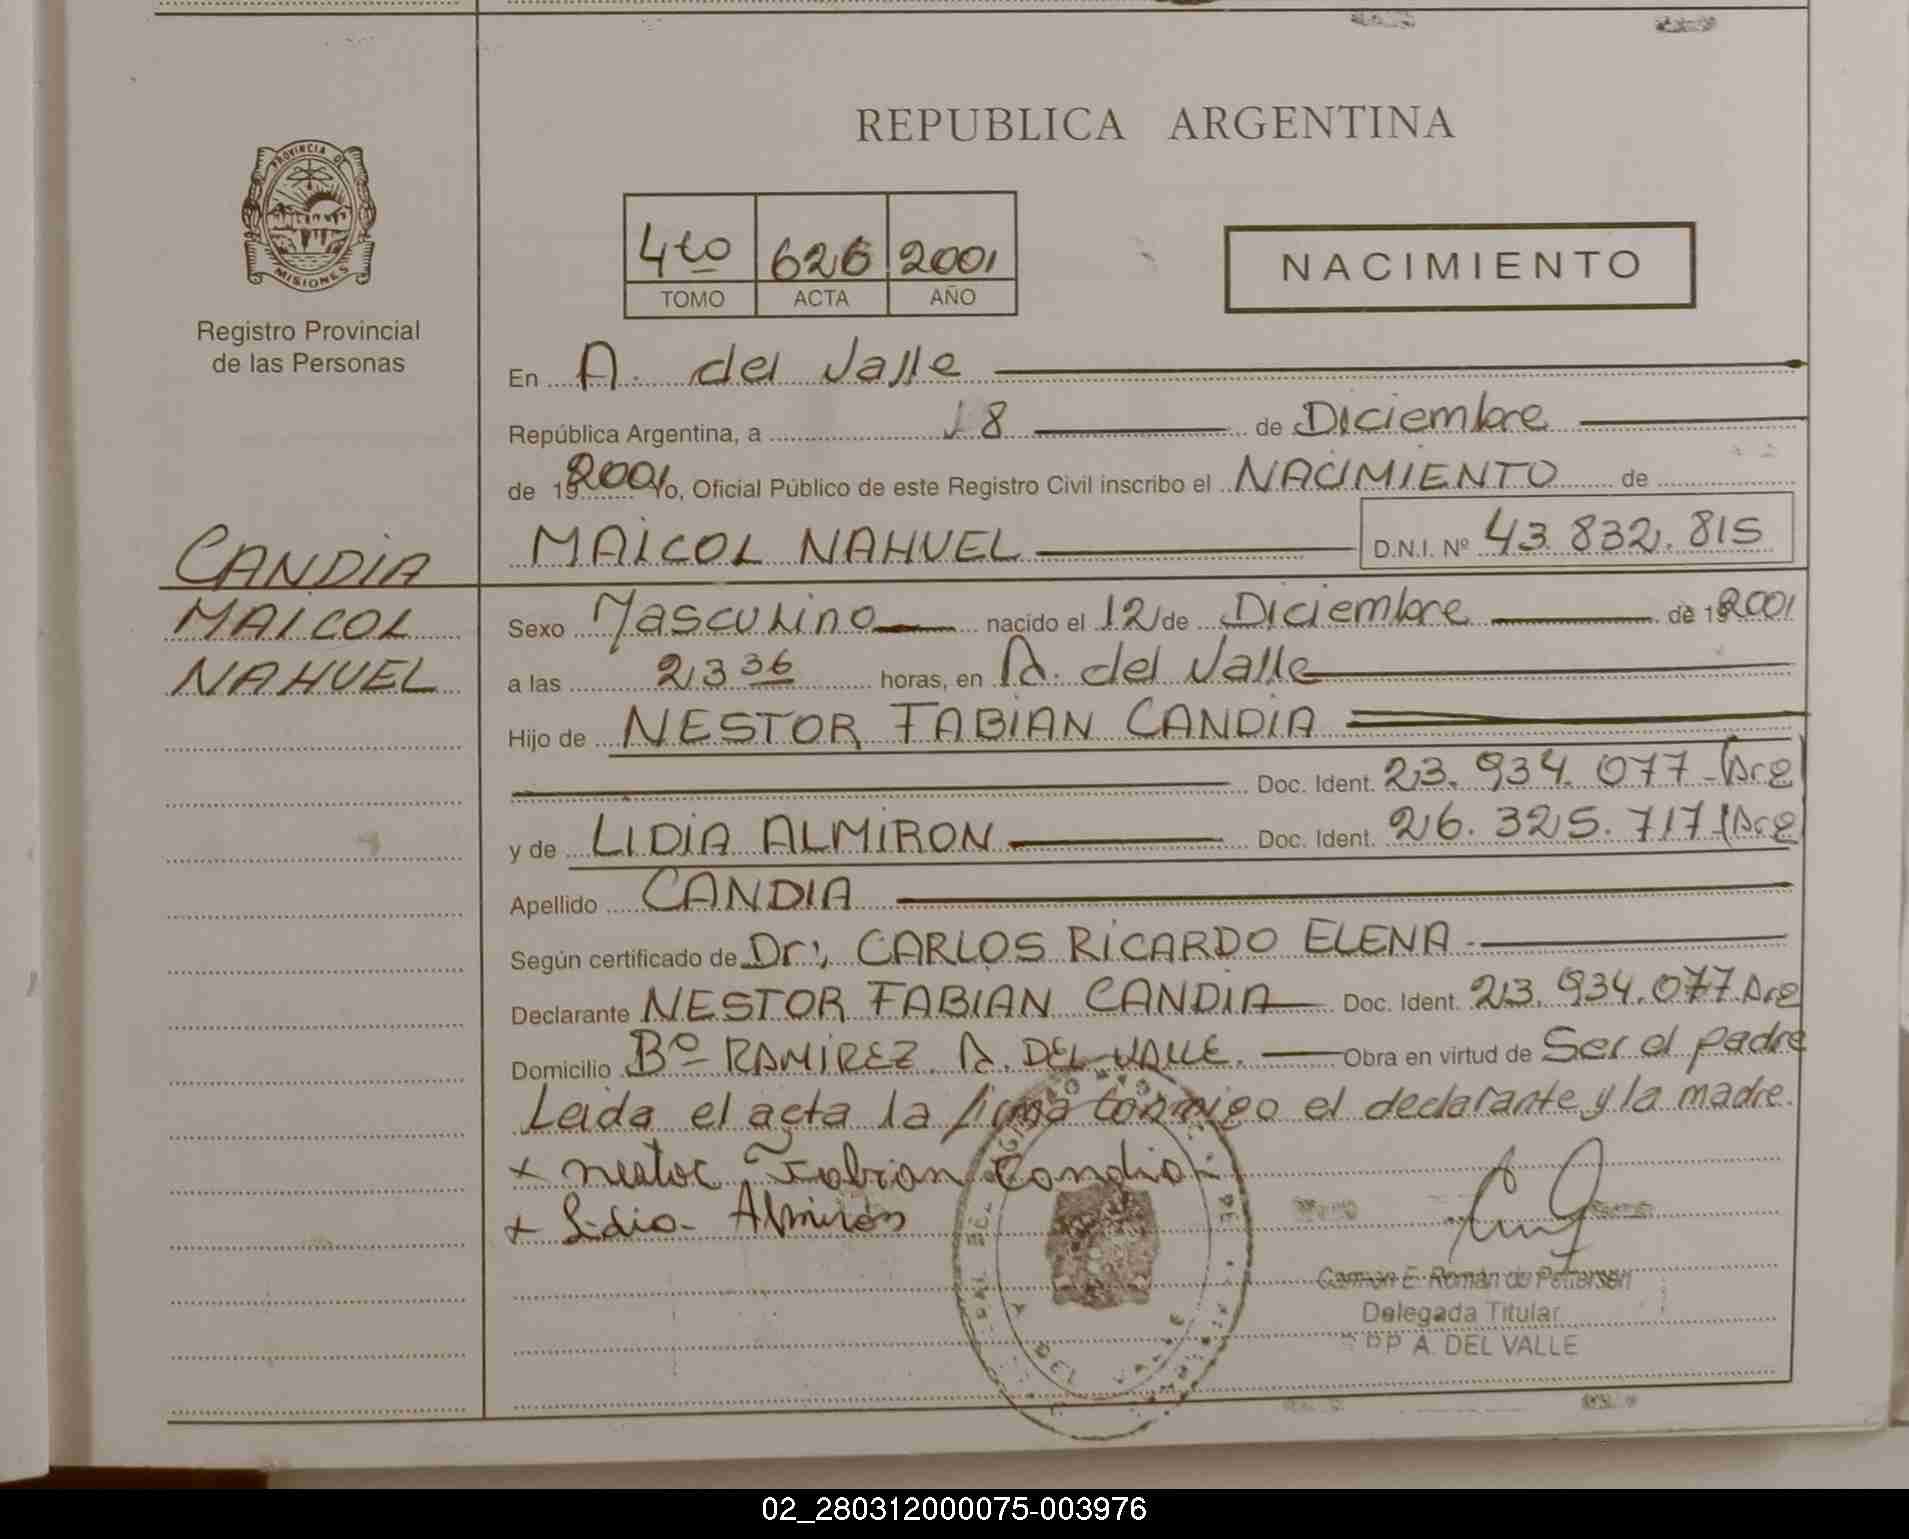 REPUBLICA ARGENTINA
PROVINCIA DE
MISIONES
Registro Provincial
de las Personas
4to 626 2001
TOMO ACTA AÑO
NACIMIENTO
En A. del Valle
República Argentina, a 18 de Diciembre
de 19 2001 Yo, Oficial Público de este Registro Civil inscribo el NACIMIENTO de
CANDIA
MAICOL
NAHUEL
MAICOL NAHUEL D.N.I. Nº 43.832.815
Sexo Masculino nacido el 12 de Diciembre de 19 2001
a las 23 36 horas, en A. del Valle
Hijo de NESTOR FABIAN CANDIA
Doc. Ident. 23.934.077 (Arg)
y de LIDIA ALMIRON Doc. Ident. 26.325.717 (Arg)
Apellido CANDIA
Según certificado de Dr: CARLOS RICARDO ELENA
Declarante NESTOR FABIAN CANDIA Doc. Ident. 23.934.077 Arg
Domicilio Bº RAMIREZ A. DEL VALLE. Obra en virtud de Ser el padre
Leida el acta la firma conmigo el declarante y la madre.
x nestor Fabian Candia
x Lidia Almiron
Carmen E. Román de Pettersen
Delegada Titular
A. DEL VALLE
A DEL VALLE
02_280312000075-003976